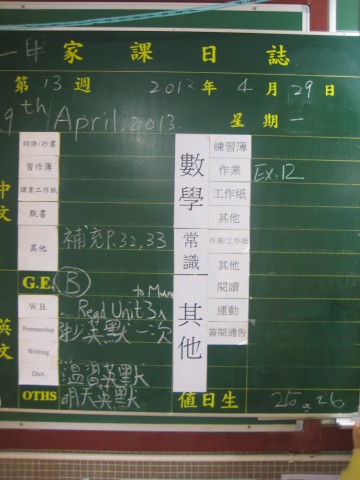 一甲 家課日誌
第 13 週 2013 年 4 月 29 日
9th April, 2013. 星期一
詞語/抄書
習作簿
課業工作紙
默書
其他 補充P.32,33
中文
G.E. B
W.B. Read Unit 3 to Mum
Penmanship 抄英默一次
Writing
Dict. 溫習英默
OTHS 明天英默
英文
數學
練習簿
作業 Ex.12
工作紙
其他
常識
作業/工作紙
其他
其他
閱讀
運動
簽閱通告
值日生 25, 26